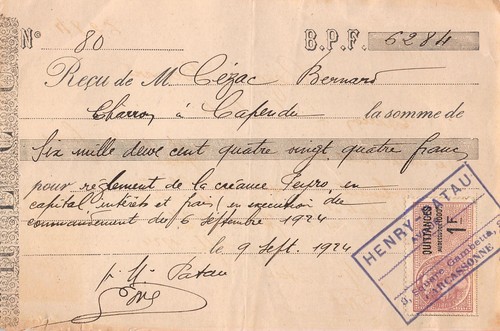 N° 80 B.P.F. 6284
Reçu de M Cézac Bernard
Charron à Capendu la somme de
Six mille deux cent quatre vingt quatre francs
pour reglement de la créance Peyre, en
capital intérêts et frais (en execution du
commandement du 6 septembre 1924
le 9 Sept. 1924
p. H. Patau
HENRY PATAU
9, Square Gambetta, 9
CARCASSONNE
QUITTANCES
1F
REÇU